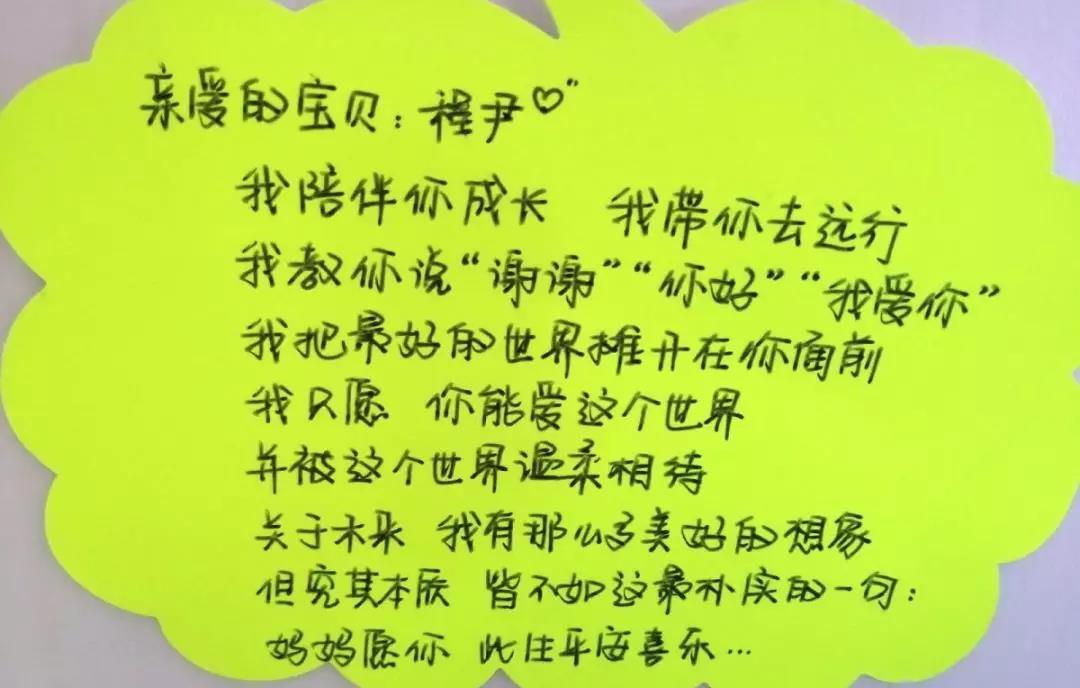 亲爱的宝贝：程尹♡"
我陪伴你成长 我带你去远行
我教你说“谢谢”“你好”“我爱你”
我把最好的世界摊开在你面前
我只愿 你能爱这个世界
并被这个世界温柔相待
关于未来 我有那么多美好的想象
但究其本质 皆不如这最朴实的一句：
妈妈愿你 此生平安喜乐…